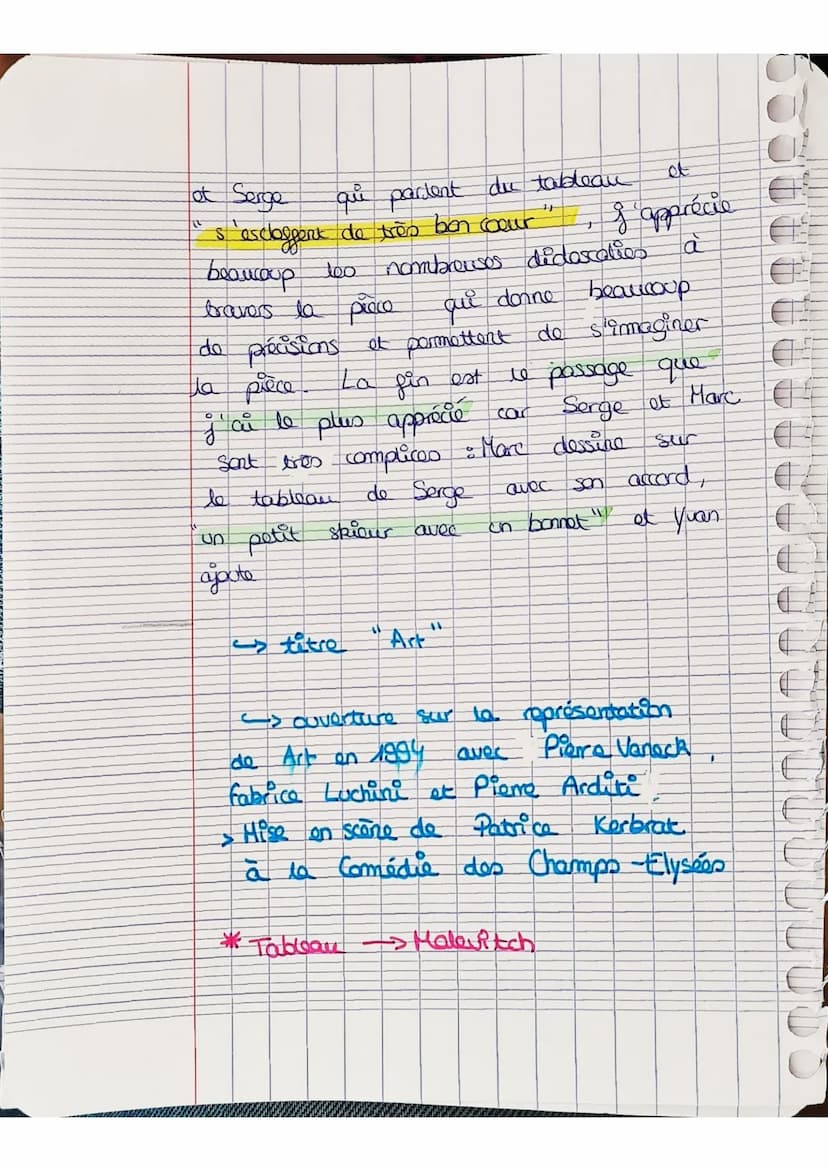 et Serge qui parlent du tableau et
"s'esclaffent de très bon coeur", j'apprécie
beaucoup les nombreuses didascalies à
travers la pièce qui donne beaucoup
de précisions et permettent de s'imaginer
la pièce. La fin est le passage que
j'ai le plus apprécié car Serge et Marc
sont très complices : Marc dessine sur
le tableau de Serge avec son accord,
"un petit skieur avec un bonnet" et Yvan
ajoute
↪ titre "Art"
↪ ouverture sur la représentation
de Art en 1994 avec Pierre Vaneck,
Fabrice Luchini et Pierre Arditi.
> Mise en scène de Patrice Kerbrat
à la Comédie des Champs-Elysées
* Tableau → Malevitch